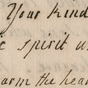 Your kind
spirit
warm the hea